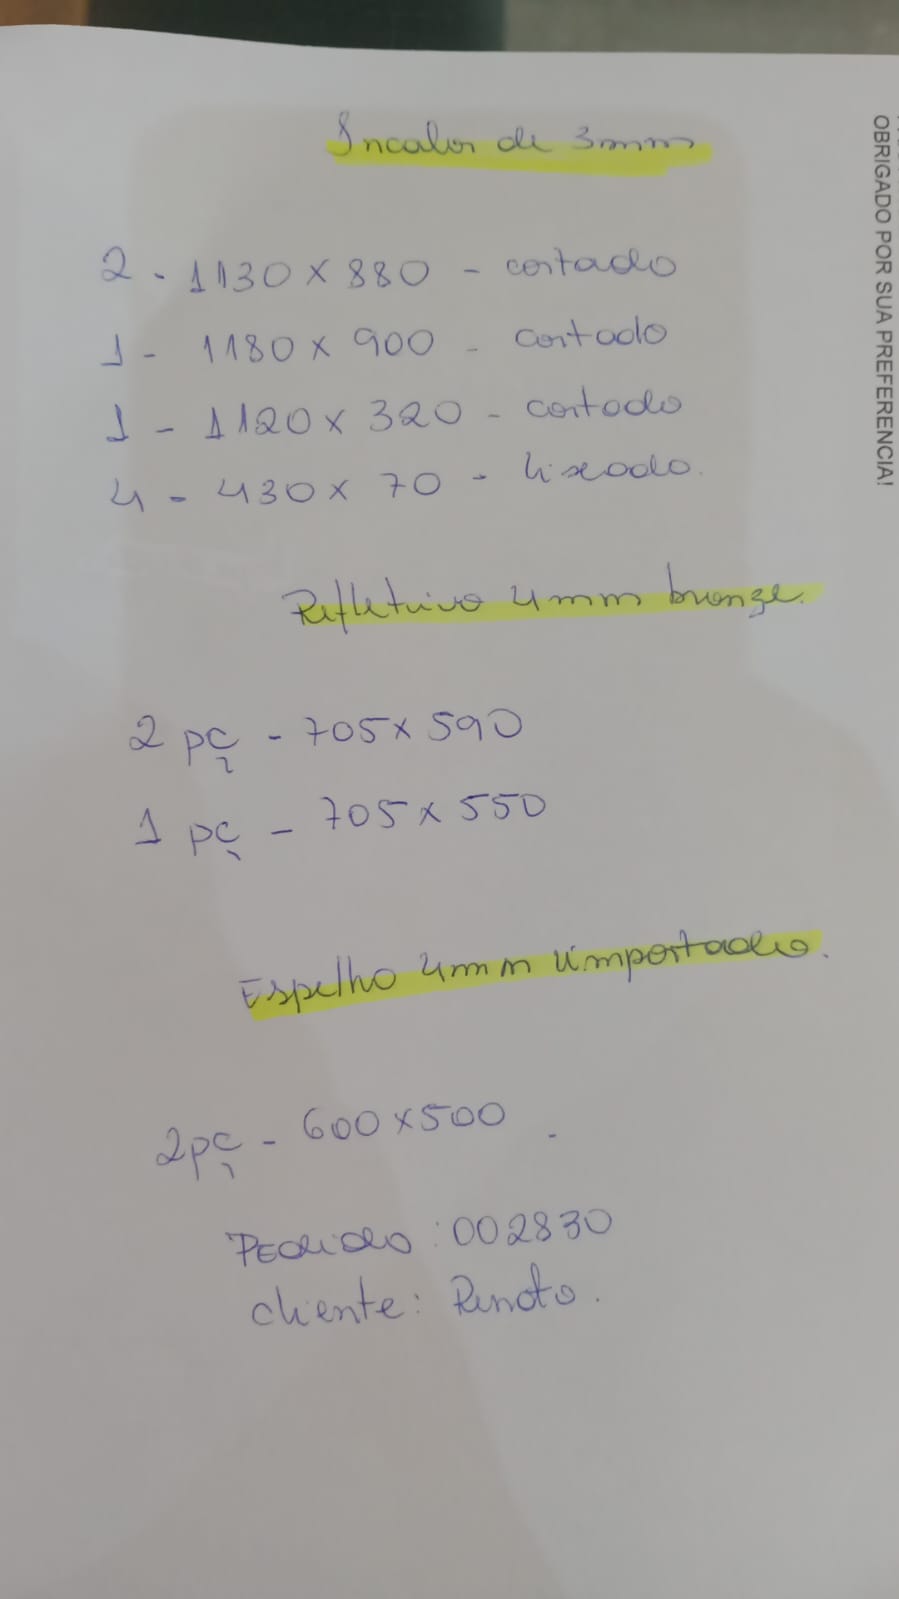 Incalor de 3mm
2 - 1130 x 880 - cortado
1 - 1180 x 900 - cortado
1 - 1120 x 320 - cortado
4 - 430 x 70 - lixado.
Refletivo 4mm bronze.
2 pç - 705 x 590
1 pç - 705 x 550
Espelho 4mm importado.
2pç - 600 x 500
Pedido: 002830
cliente: Renato.
OBRIGADO POR SUA PREFERENCIA!